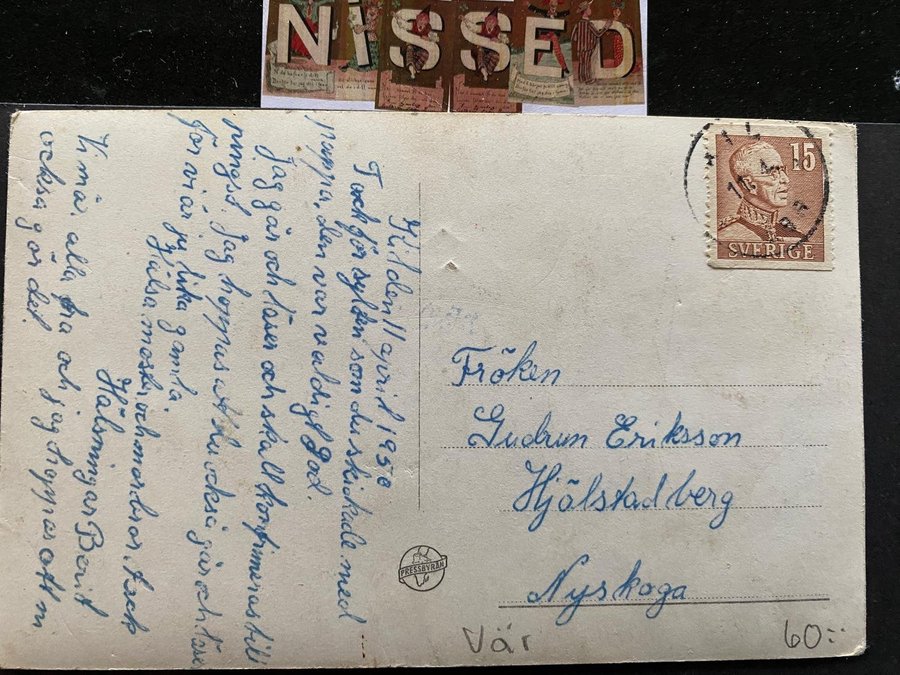 NISSED
Kil den 11 april 1950
Tack för sylten som du skickade med
pappa, den var väldigt God.
Jag går och läser och skall konfirmeras till
pingst. Jag hoppas att du också går och läse
för vi är ju lika gamla
Hälsa moster och morbror
Hälsningar Berit
Vi må. alla bra och jag hoppas att ni
också gör det.
15
SVERIGE
Fröken
Gudrun Eriksson
Hjälstadberg
Nyskoga
PRESSBYRÅN
Vår
60:-